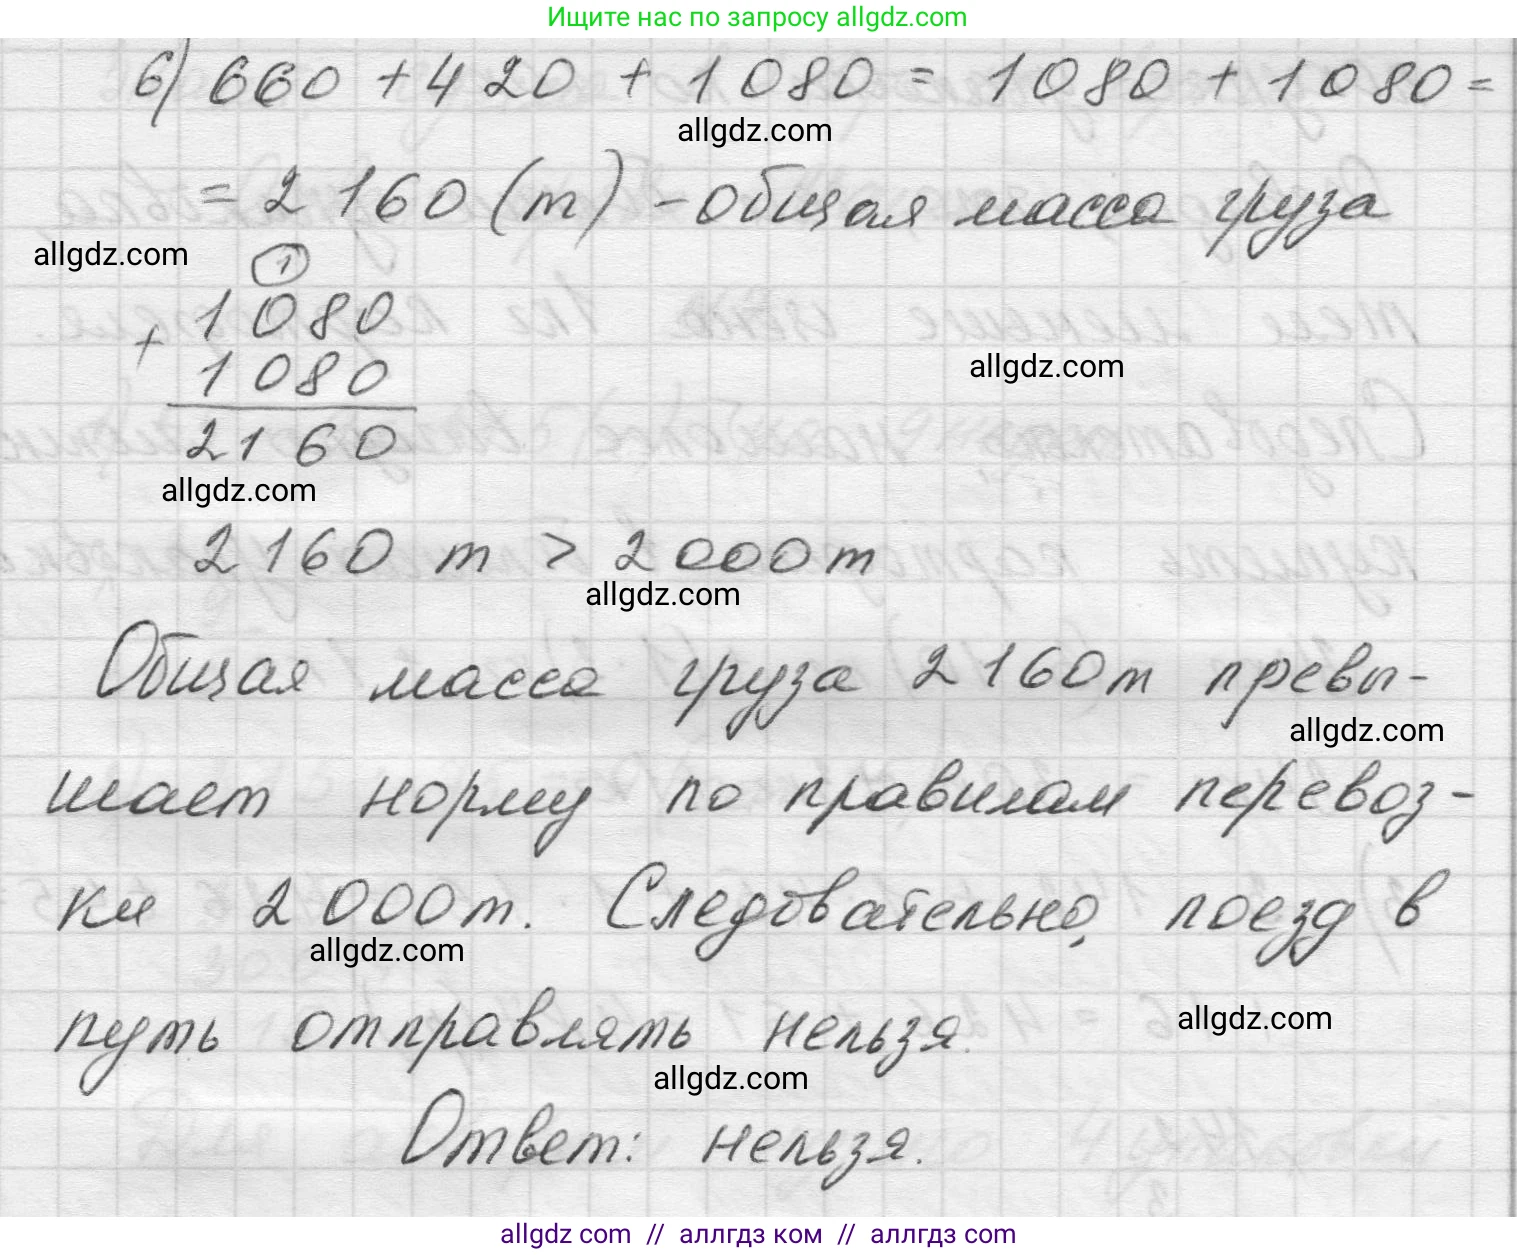 Ищите нас по запросу allgdz.com
6) 660 + 420 + 1080 = 1080 + 1080 =
allgdz.com
= 2160 (т) - общая масса груза
allgdz.com
1
1080
+
allgdz.com
1080
2160
allgdz.com
2160 т > 2000 т
allgdz.com
Общая масса груза 2160 т превы-
allgdz.com
шает норму по правилам перевоз-
ки 2000 т. Следовательно, поезд в
allgdz.com
путь отправлять нельзя.
allgdz.com
allgdz.com
Ответ: нельзя.
allgdz.com // аллгдз ком // аллгдз com